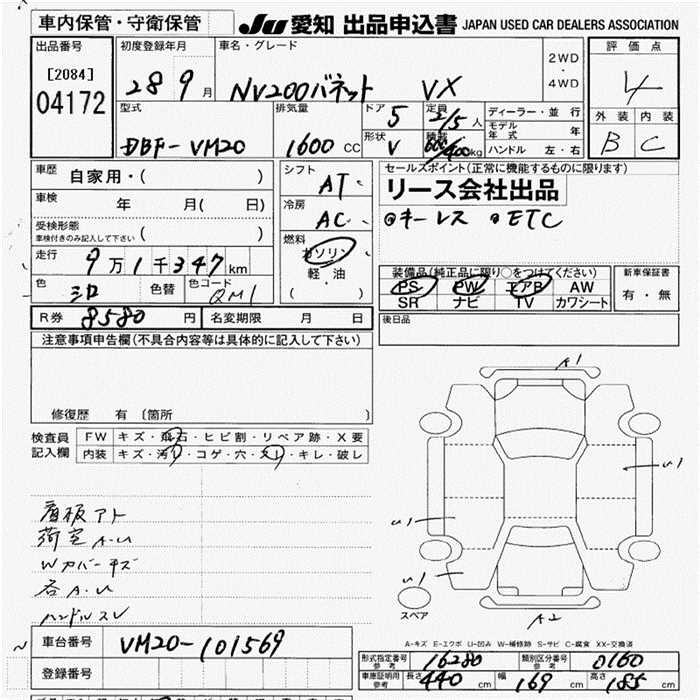 車内保管・守衛保管 JU 愛知 出品申込書 JAPAN USED CAR DEALERS ASSOCIATION
出品番号 初度登録年月 車名・グレード 2WD・4WD 評価点
[2084] 04172
28 9月 NV200バネット VX 4
型式 排気量 ドア 5 定員 2/5人 ディーラー・並行 外装 内装
DBF-VM20 1600 CC 形状 V 積載 600/400kg モデル年式 年 B C
ハンドル 左・右
車歴 自家用・( ) シフト AT セールスポイント(正常に機能するものに限ります)
リース会社出品
車検 年 月( 日) 冷房 AC キーレス ETC
受検形態 車検付きのみ記入して下さい ( )
走行 9万1千347km 燃料 ガソリン 軽・油 ( )
装備品(純正品に限り○をつけてください) 新車保証書
色 シロ 色替 色コード QM1 PS PW エアB AW 有・無
SR ナビ TV カワシート
R券 8580円 名変期限 月 日 後日品
注意事項申告欄(不具合内容等は具体的に記入して下さい)
修復歴 有 〔箇所 〕
検査員記入欄 FW キズ・飛石・ヒビ割・リペア跡・X要
内装 キズ・汚れ・コゲ・穴・スレ・キレ・破レ
A1
U1
看板アト
荷室A.U
U1
Wカバーキズ
各A.U
U1
ハンドルスレ
スペア
A2
A-キズ E-エクボ U-凹み W-補修跡 S-サビ C-腐食 XX-交換済
車台番号 VM20-101569
形式指定番号 参考 16280 類別区分番号 参考 0160
登録番号 車庫証明用 参考 長さ 440cm 幅 169cm 高さ 185cm